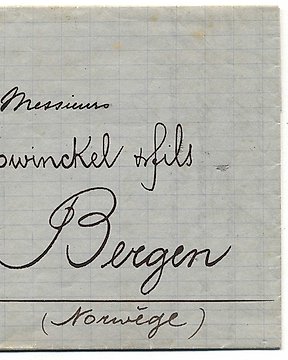 Messieurs
owinckel & fils
Bergen
(Norwège)